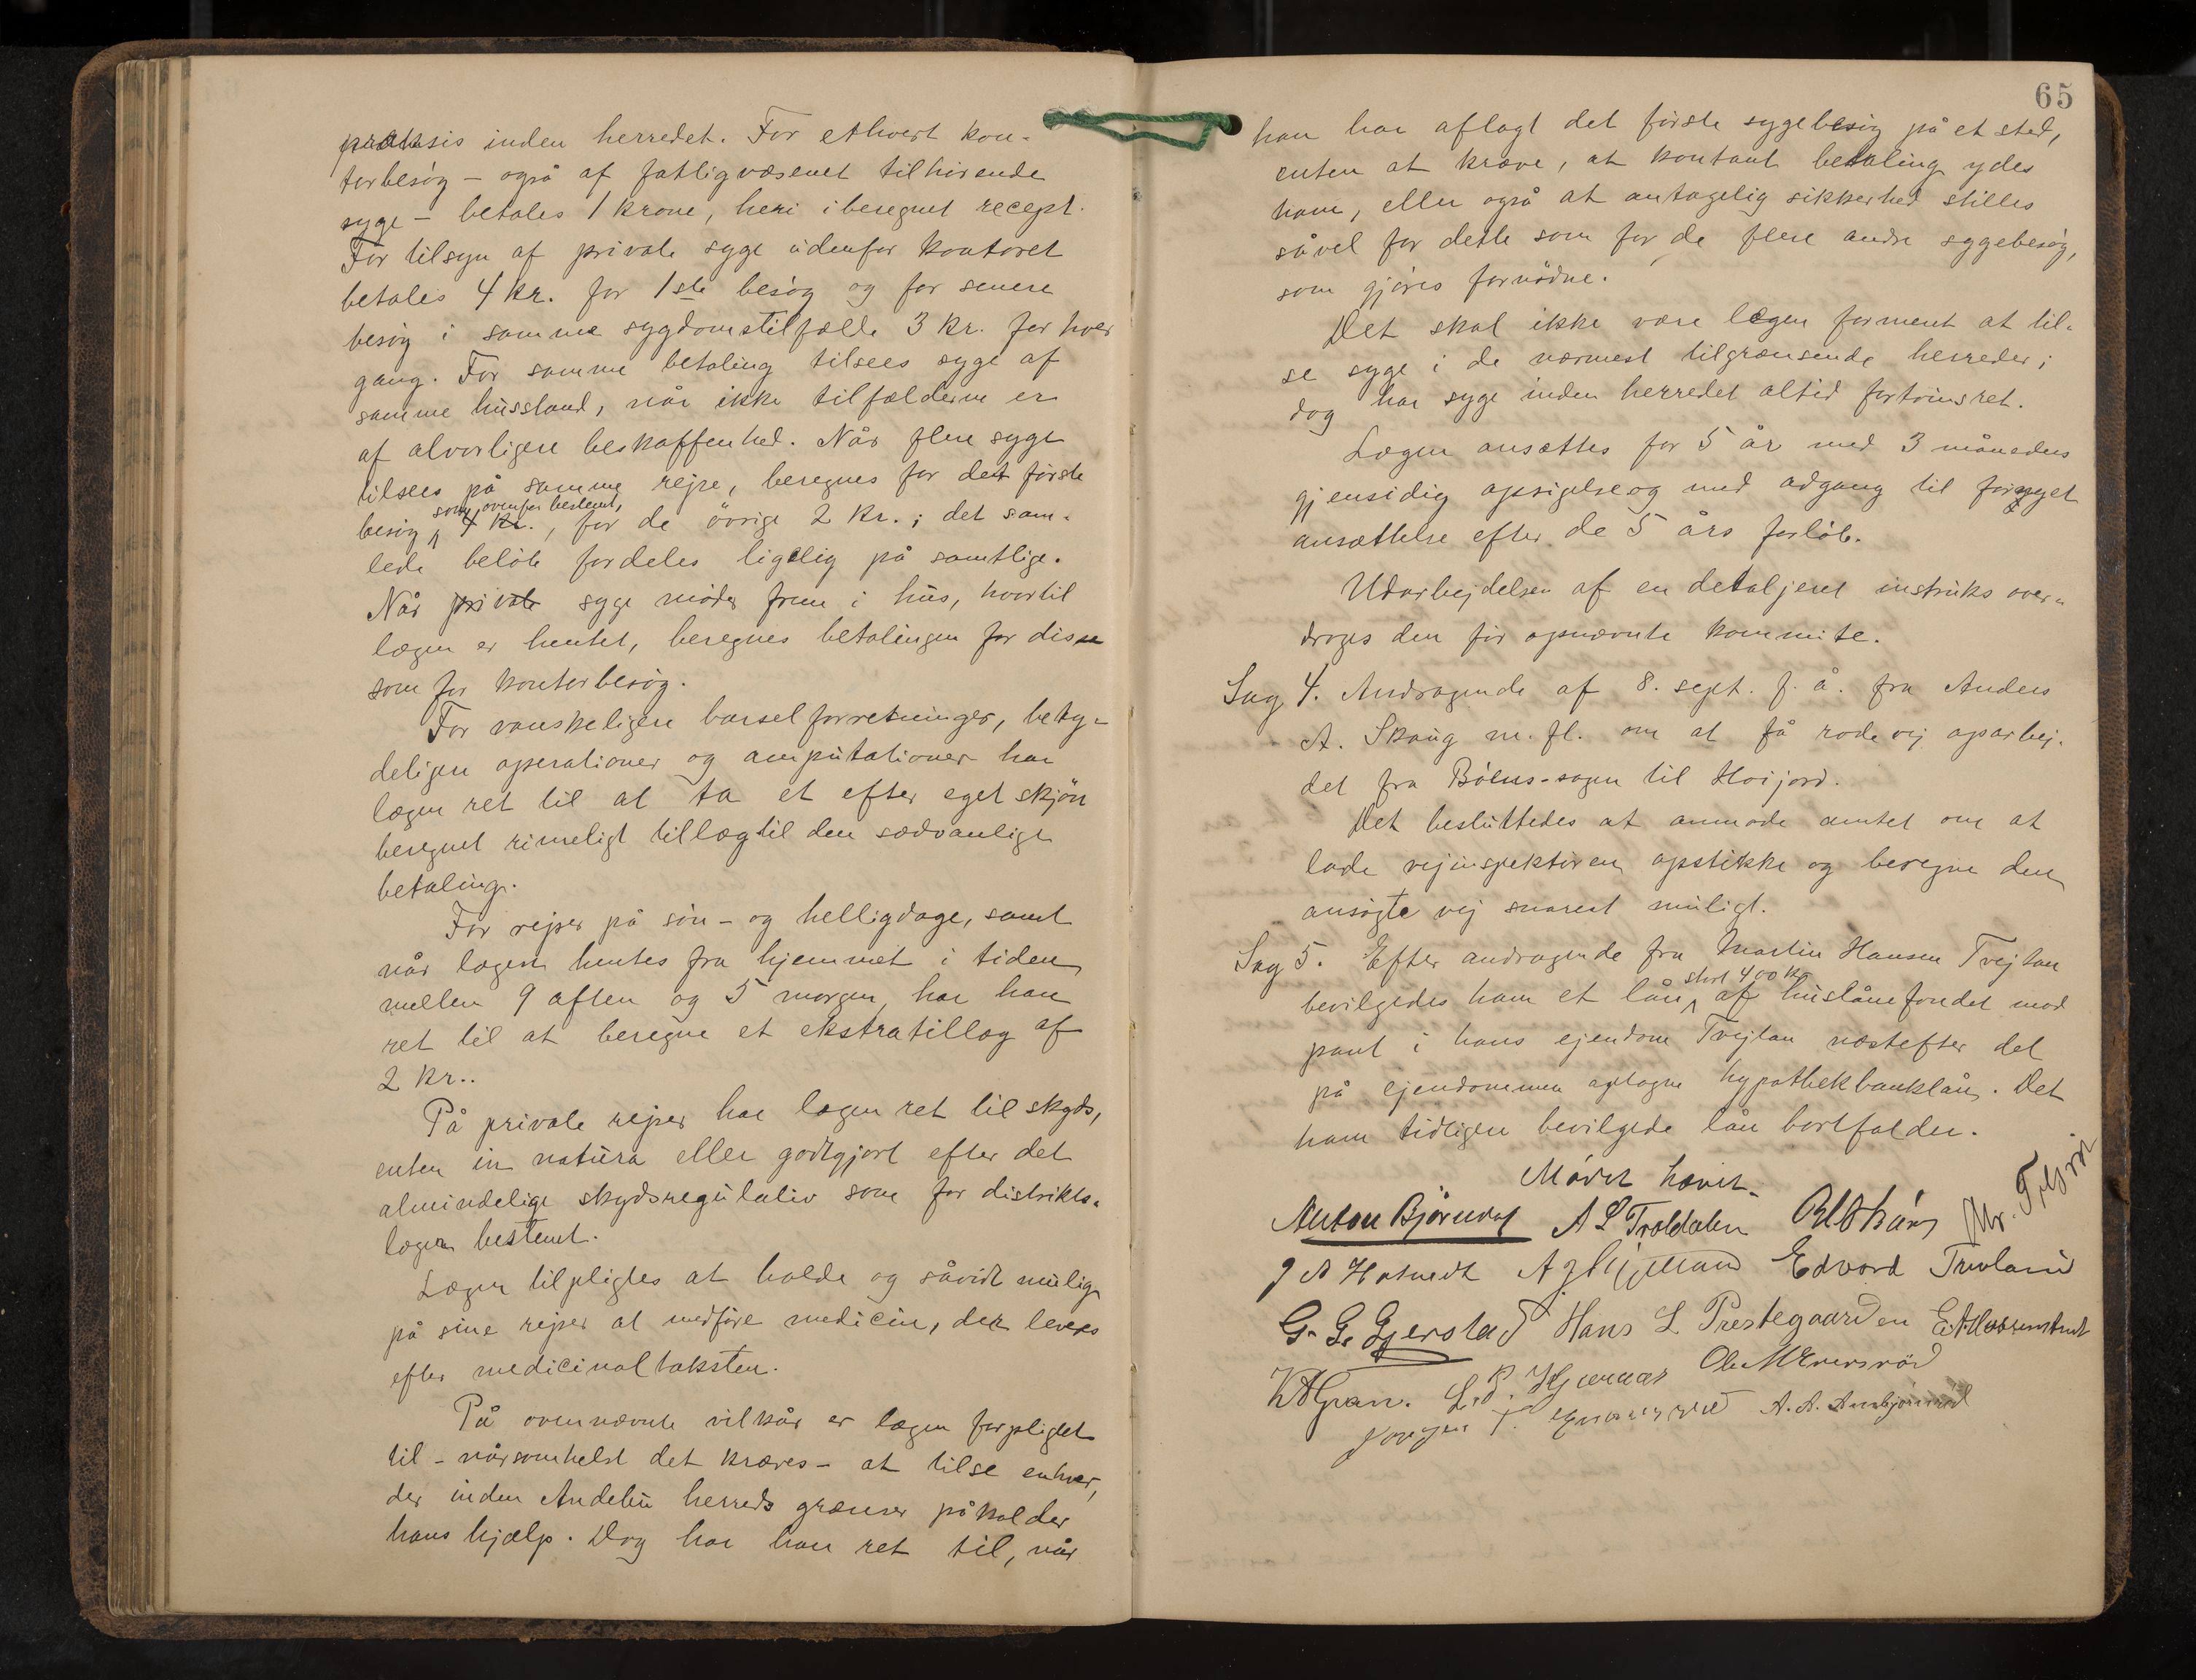 praksis inden herredet. For ethvert kon-
torbesøg – også af fattigvæsenet tilhørende
syge – betales 1 krone, heri iberegnet recept.
For tilsyn af private syge udenfor kontoret
betales 4 kr. for 1ste besøg og for senere
besøg i samme sygdomstilfælde 3 kr. for hver
gang. For samme betaling tilsees syge af
samme husstand, når ikke tilfælderne er
af alvorligere beskaffenhed. Når flere syge
tilsees på samme rejse, beregnes for det første
som ovenfor bestemt,
besøg 4 kr., for de øvrige 2 kr.; det sam-
lede beløb fordeles ligelig på samtlige.
Når private syge møder frem i hus, hvortil
lægen er hentet, beregnes betalingen for disse
som for kontorbesøg.
For vanskeligere barselforretninger, bety-
deligere operationer og amputationer har
lægen ret til at ta et efter eget skjøn
beregnet rimeligt tillæg til den sædvanlige
betaling.
For rejser på søn- og helligdage, samt
når lægen hentes fra hjemmet i tiden
mellem 9 aften og 5 morgen har han
ret til at beregne et ekstratillæg af
2 kr..
På private rejser har lægen ret til skyds,
enten in natura eller godtgjort efter det
almindelige skydsregulativ som for distrikts-
læger bestemt.
Lægen tilpligtes at holde og såvidt mulig
på sine rejser at medføre medicin, der leveres
efter medicinaltaksten.
På ovennævnte vilkår er lægen forpligtet
til – nårsomhelst det kræves – at tilse enhver,
der inden Andebu herreds grænser påkalder
hans hjælp. Dog har han ret til, når
65
han har aflagt det første sygebesøg på et sted,
enten at kræve, at kontant betaling ydes
ham, eller også at antagelig sikkerhed stilles
såvel for dette som for de flere andre sygebesøg,
som gjøres fornødne.
Det skal ikke være lægen forment at til-
se syge i de nærmest tilgrænsende herreder;
dog har syge inden herredet altid fortrinsret.
Lægen ansættes for 5 år med 3 måneders
gjensidig opsigelse og med adgang til fornyet
ansættelse efter de 5 års forløb.
Udarbejdelsen af en detaljeret instruks over-
drages den før opnævnte kommite.
Sag 4. Andragende af 8. sept. f. å. fra Anders
A. Skaug m. fl. om at få rodevej oparbej-
det fra Bølens-sagen til Høijord.
Det besluttedes at anmode amtet om at
lade vejinspektøren opstikke og beregne den
ansøgte vej snarest muligt.
Sag 5. Efter andragende fra Martin Hansen Trejtan
stort 400 kr
bevilgedes ham et lån af huslånefondet mod
pant i hans ejendom Trejtan næstefter det
på ejendommen optagne hypothekbanklån. Det
ham tidligere bevilgede lån bortfalder.
Mødet hævet.
Anton Bjørndal A L Trolldalen
Edvard
G. G. Gjerstad Hans L Prestegaarden
K A Gran.
A. A.